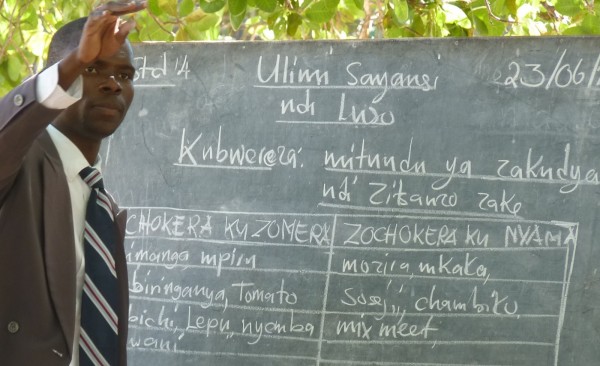 Std 4
Ulimi Sayansi
ndi Luso
23/06/
Kubwereza: mitundu ya zakudya
ndi zitsanzo zake
CHOKERA KU ZOMERA ZOCHOKERA KU NYAMA
imanga mpiru mazira, mkaka,
biringanya, Tomato Soseji, chambiko,
bichi, Lepu, nyemba mix meet,
wani